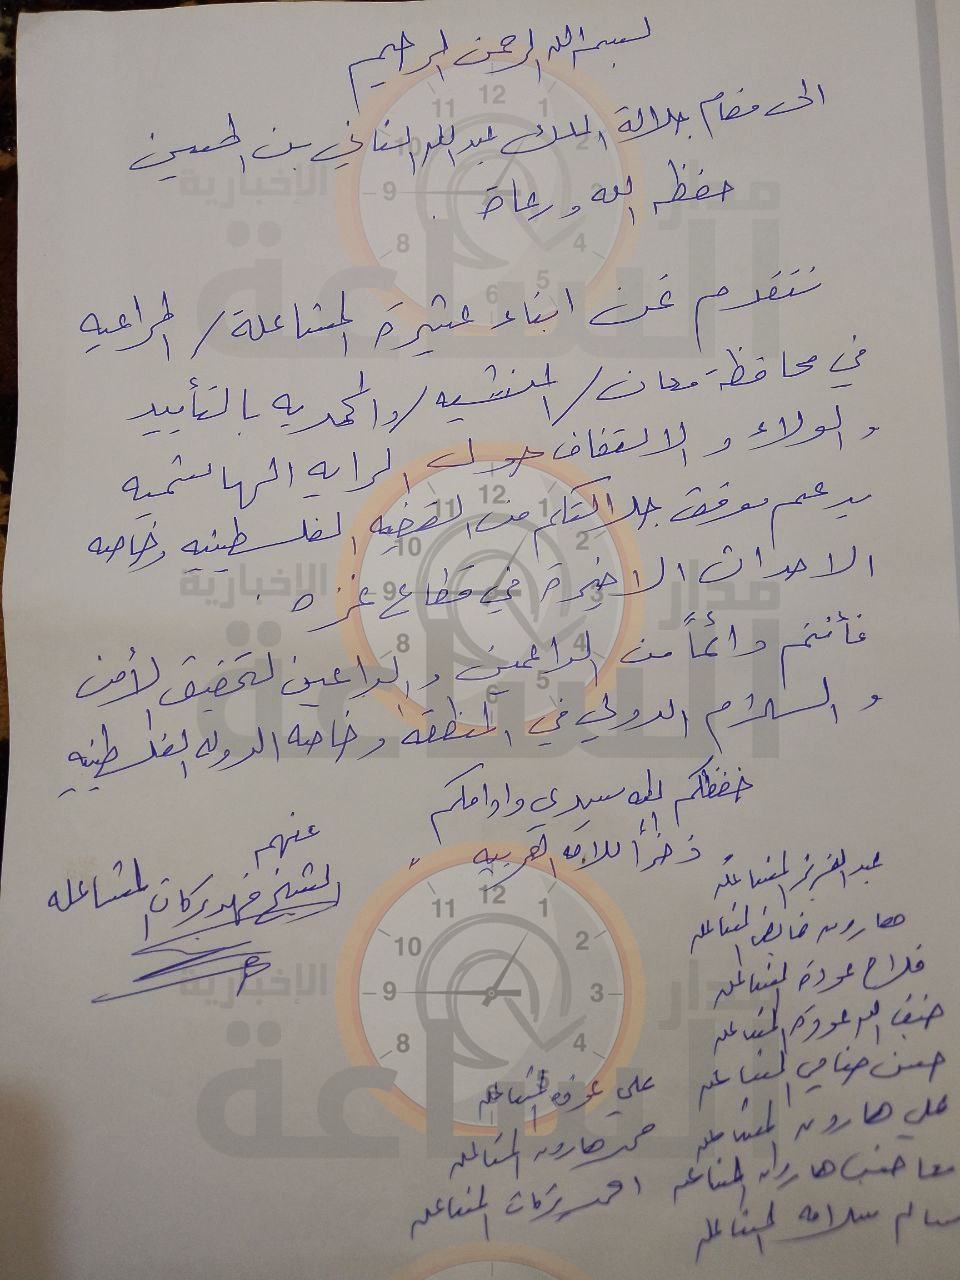 بسم الله الرحمن الرحيم
الى مقام جلالة الملك عبدالله الثاني بن الحسين
حفظه الله ورعاه
نتقدم نحن ابناء عشيرة المشاعلة / المراعيه
في محافظة معان / المنشيه / والمحمديه بالتأييد
والولاء والالتفاف حول الرايه الهاشميه
بدعم موقف جلالتكم من القضيه الفلسطينيه وخاصه
الاحداث الاخيرة في قطاع غزه .
فأنتم دائماً من الداعمين والداعين لتحقيق الأمن
والسلام الدولي في المنطقة وخاصه الدوله الفلسطينيه
حفظكم الله سيدي وادامكم
ذخراً للامه العربيه
عنهم
الشيخ فهد بركات المشاعله
عبدالعزيز المشاعله
هارون فايض المشاعله
فلاح عودة المشاعله
ضيف الله عودة المشاعله
حسن المشاعله
علي هارون المشاعله
هارون المشاعله
سالم سلامه المشاعله
علي عوده المشاعله
حمد هارون المشاعله
احمد بركات المشاعله
مدار الساعة الإخبارية
12 1 2 3 4 5 6 8 9 10 11